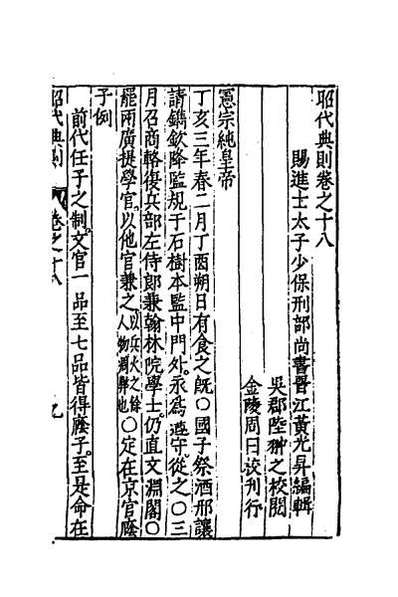 昭代典則卷之十八
賜進士太子少保刑部尚書晉江黃光昇編輯
吳郡陸翀之校閱
金陵周日校刊行
憲宗純皇帝
丁亥三年春二月丁酉朔日有食之既○國子祭酒邢讓
請鐫欽降監規于石樹本監中門外永爲遵守從之○三
月召商輅復兵部左侍郎兼翰林院學士仍直文淵閣○
罷兩廣提學官以他官兼之以兵火之餘人物凋弊也○定在京官廕
子例
前代任子之制文官一品至七品皆得廕子至是命在
昭代典則 卷之十八